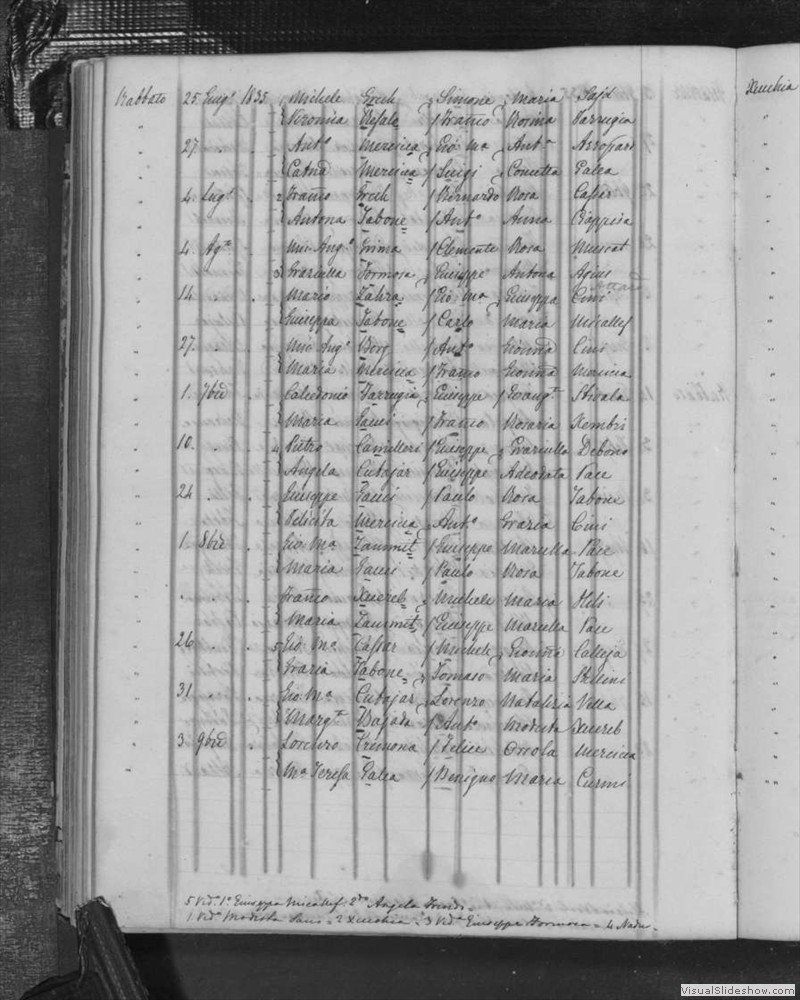 Rabbato 25 Giug.º 1835 Michele Grech Simone Maria
Veronica Refalo Franc.º Rosina Farrugia
27 Ant.º Mercieca Gio M.ª Ant.ª
Mercieca Luigi Concetta Galea
4 Lug.º 2 Franc.º Grech Bernardo Rosa Cassar
Antona Tabone Ant.º Anna
4 Ag.º Mic. Ang.º Grima Clemente Rosa Muscat
3 Graziella Formosa Giuseppe Antona Agius
14 Mario Zahra Gio M.ª Giuseppa Cini
Giuseppa Tabone Carlo Maria Micallef
27 Mic. Ang.º Borg Ant.º Gionna Cini
Maria Mercieca Franc.º Gionna
1 7bre Calcedonio Farrugia Giuseppe Evang.ta Stivala
Maria Gauci Franc.º Rosaria Xembri
10 4 Pietro Camilleri Giuseppe Graziella Debono
Angela Cutajar Giuseppe Adeodata Pace
24 Giuseppe Gauci Paulo Rosa Tabone
Felicita Mercieca Ant.º Grazia Cini
1 8bre Gio. M.ª Zammit Giuseppe Mariella Pace
Maria Gauci Paulo Rosa Tabone
Franc.º Xuereb Michele Maria
Maria Zammit Giuseppe Mariella Pace
26 5 Gio. M.ª Cassar Michele Gionna Calleja
Grazia Tabone Tomaso Maria
31 Gio M.ª Cutajar Lorenzo Natalizia Vella
Marg.ta Bajada Ant.º Modesta Xuereb
3 9bre Lorenzo Cremona Felice Orsola Mercieca
M.ª Teresa Galea Benigno Maria Curmi
5 Ved. 1.º Giuseppa Micallef 2.do Angela
1 Ved.º Modesta 2 Xeuchia 3 Ved.ª Giuseppe Formosa 4 Nadur
Xeuchia
VisualSlideshow.com